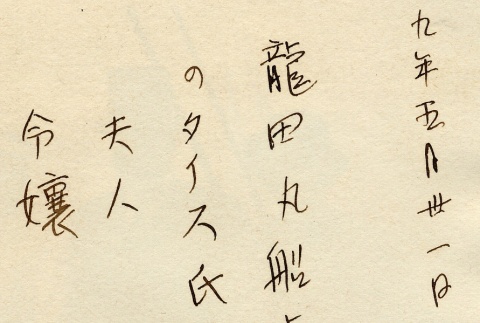 九年五月卅一日
龍田丸船
のタイス氏
夫人
令嬢